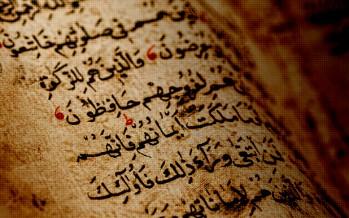 هُمْ فِي صَلَاتِهِمْ خَاشِعُو
عرِضُونَ وَالَّذِينَ هُمْ لِلزَّكَوةِ
هُمْ لِفُرُوجِهِمْ حَافِظُونَ
مَا مَلَكَتْ اَيْمَانُهُمْ فَاِنَّهُمْ
ابْتَغَى وَرَاءَ ذَلِكَ فَاُولَئِكَ
هُمْ